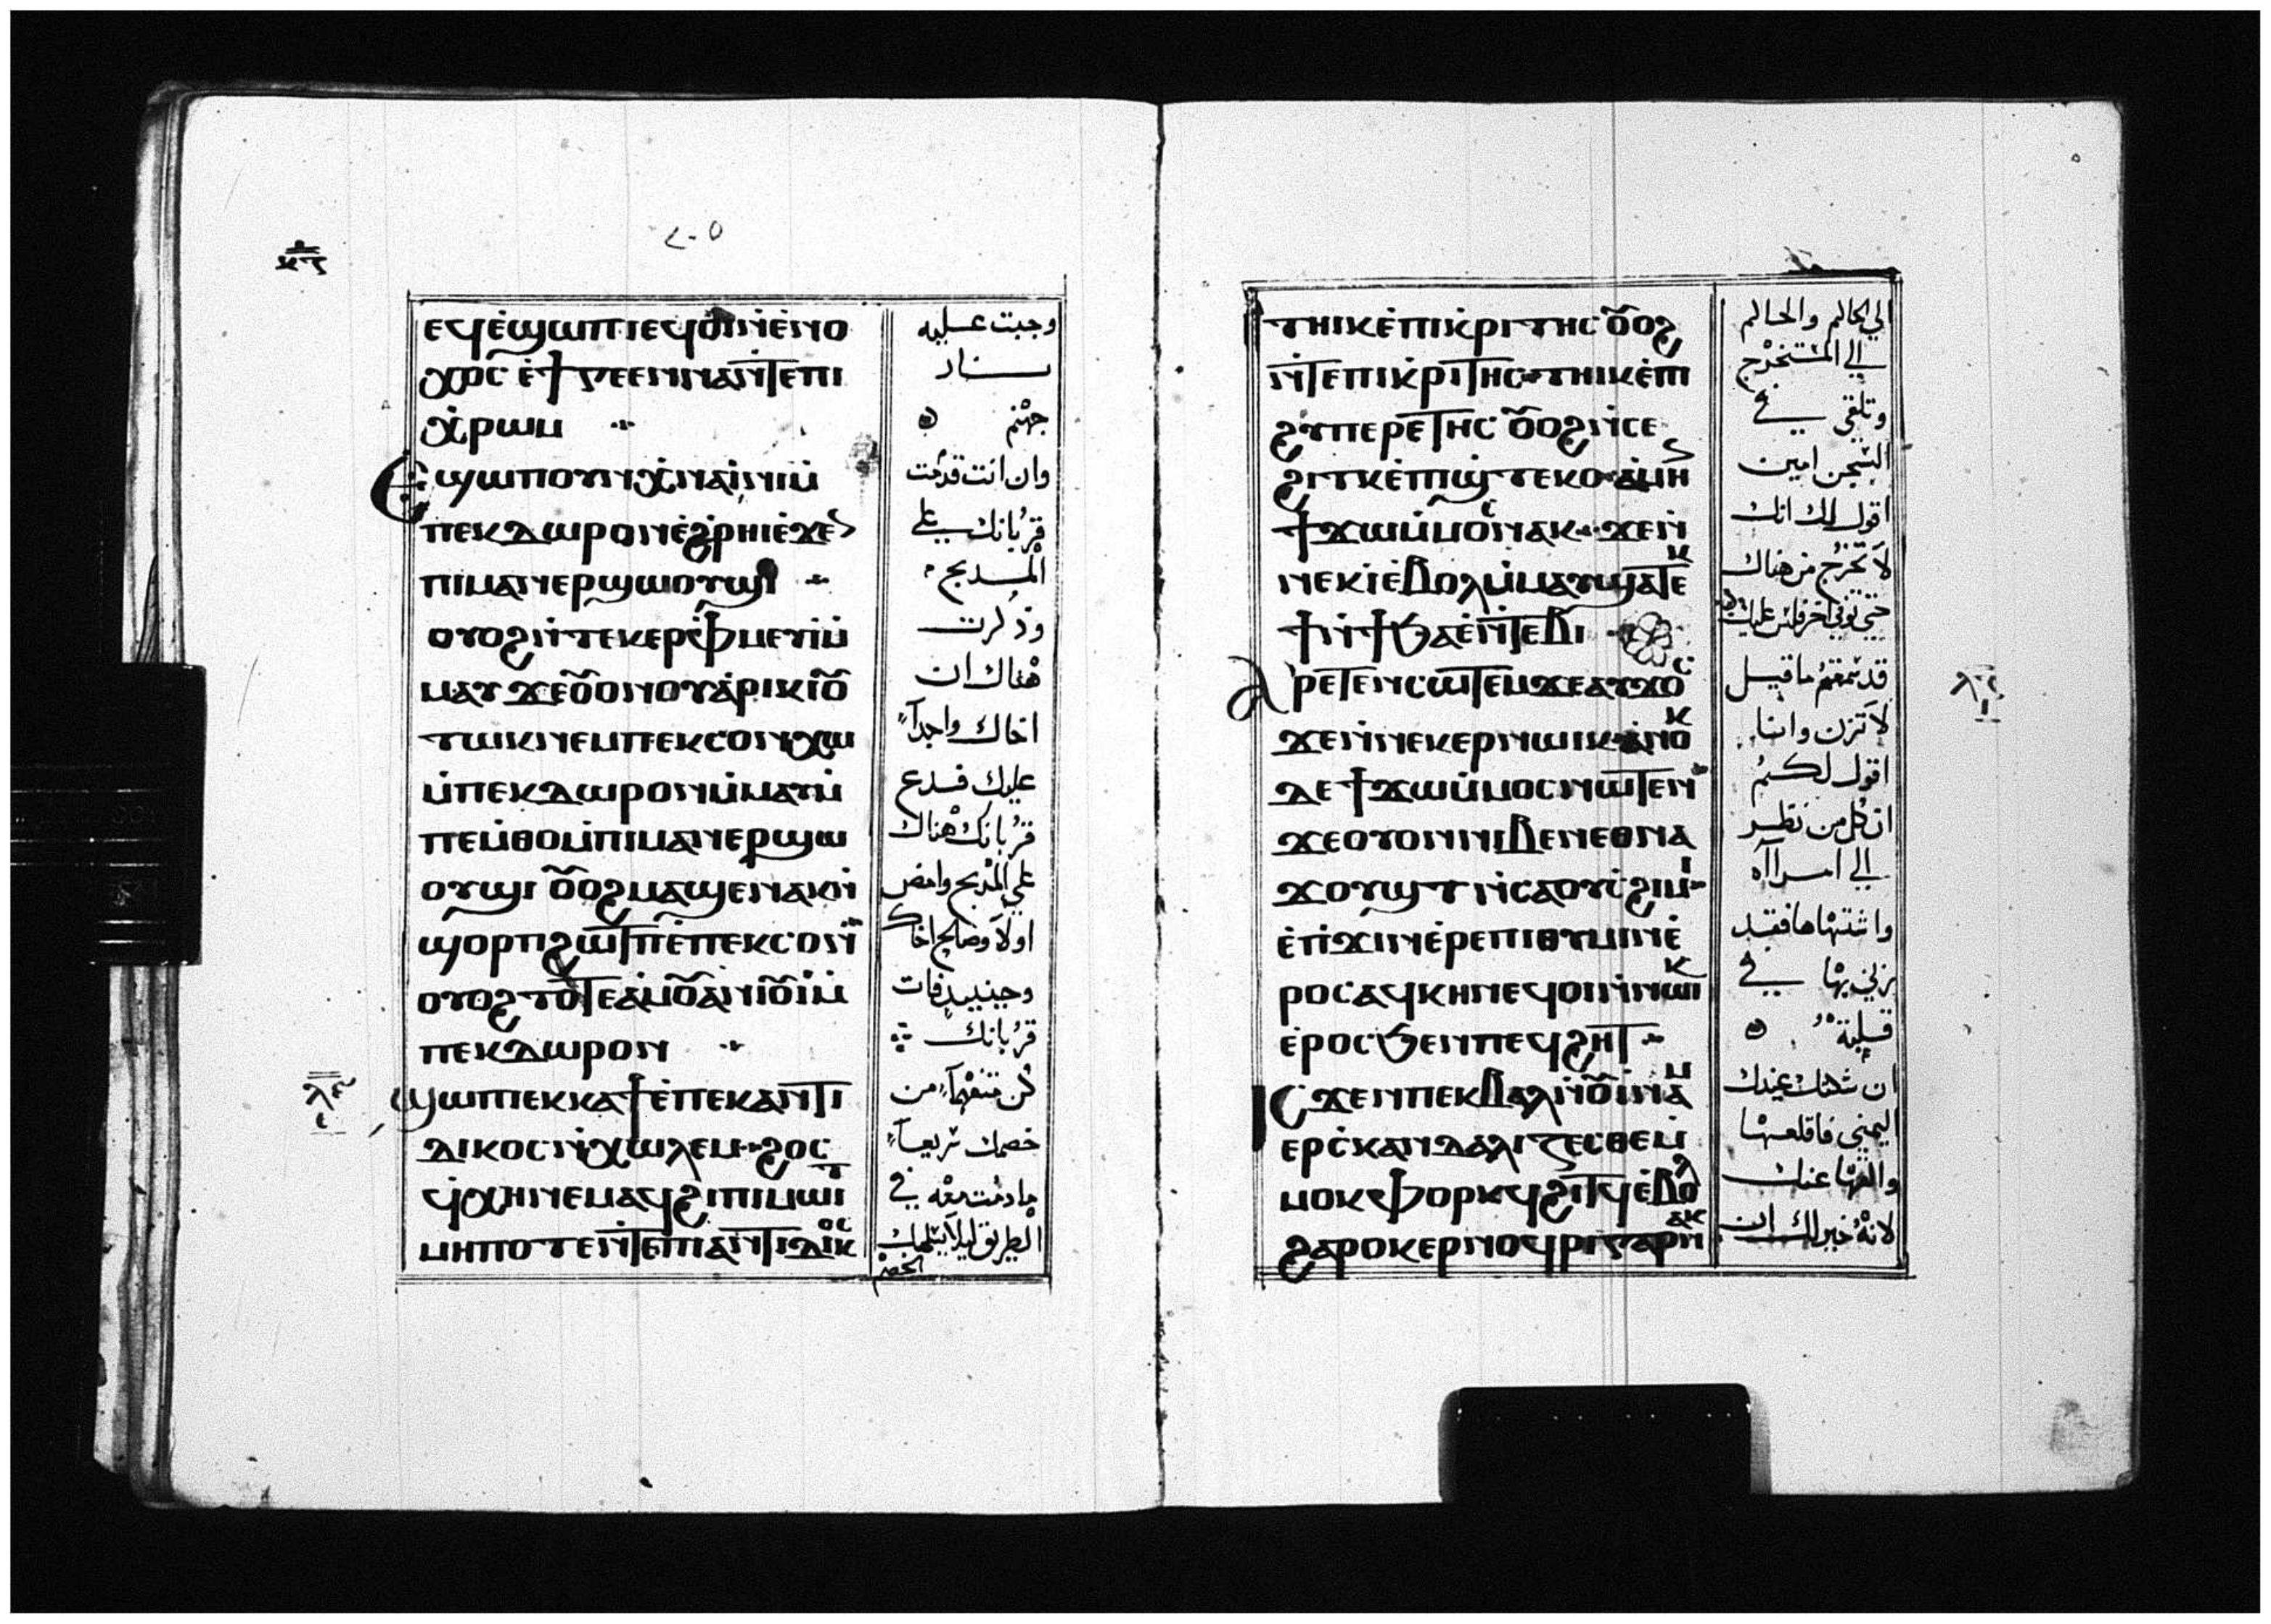 ⲉϥⲉ̀ϣⲱⲡⲓⲉϥⲟⲓⲛ̀ⲉ̀ⲛⲟ
ⲭⲟⲥ ⲉ̀ϯⲅⲉⲉⲛⲛⲁⲛ̀ⲧⲉⲡⲓ
ⲭ̀ⲣⲱⲙ
ⲉϣⲱⲡⲟⲩⲛⲭ̀ⲛⲁⲓ̀ⲛⲓⲙ̀
ⲡⲉⲕⲇⲱⲣⲟⲛⲉ̀ϩⲣⲏⲓⲉ̀ϫⲉ
ⲡⲓⲙⲁⲛⲉⲣϣⲱⲟⲩϣⲓ
ⲟⲩⲟϩⲛ̀ⲧⲉⲕⲉⲣⲫ̀ⲙⲉⲩⲓⲙ̀
ⲙⲁⲩ ϫⲉⲟ̅ⲟⲛⲟⲩⲁ̀ⲣⲓⲕⲓⲟ̅
ⲧⲱⲕⲛⲉⲙⲡⲉⲕⲥⲟⲛⲭⲱ
ⲙ̀ⲡⲉⲕⲇⲱⲣⲟⲛⲙ̀ⲙⲁⲩⲙ̀
ⲡⲉⲙ̀ⲑⲟⲙ̀ⲡⲓⲙⲁⲛⲉⲣϣⲱ
ⲟⲩϣⲓ ⲟ̅ⲟϩⲙⲁϣⲉⲛⲁⲕⲛ̀
ϣⲟⲣⲡϩⲱⲧⲡⲉ̀ⲡⲉⲕⲥⲟⲛ
ⲟⲩⲟϩⲧⲟ̅ⲧⲉⲁ̀ⲙⲟ̅ⲁ̀ⲛⲓⲟ̅ⲓⲙ̀
ⲡⲉⲕⲇⲱⲣⲟⲛ
ϣⲱⲡⲓⲉⲕⲕⲁϯⲉ̀ⲡⲉⲕⲁⲛⲧⲓ
ⲇⲓⲕⲟⲥⲛ̀ⲭⲱⲗⲉⲙ ϩⲟⲥ
ϥⲭⲏⲛⲉⲙⲁϥϩⲓⲡⲓⲙⲱⲓⲧ
ⲙⲏⲡⲟⲧⲉⲛ̀ⲧⲉⲡⲓⲁⲛⲧⲓⲇⲓⲕⲟⲥ
وجبت عليه
نار
جهنم
وان انت قدمت
قربانك علي
المدبح
وذكرت
هناك ان
اخاك واجداً
عليك فدع
قربانك هناك
علي المدبح وامض
اولاً وصالح اخاك
وحينيد فات
قربانك
كن متفهماً من
خصمك سريعاً
ما دمت معه في
الطريق ليلا يسلمك
الخصم
ⲧⲏⲓⲕⲉ̀ⲡⲓⲕ̀ⲣⲓⲧⲏⲥ ⲟ̅ⲟϩ
ⲛ̀ⲧⲉⲡⲓⲕ̀ⲣⲓⲧⲏⲥ ⲧⲏⲓⲕⲉ̀ⲡⲓ
ϩⲩⲡⲉⲣⲉⲧⲏⲥ ⲟ̅ⲟϩⲛ̀ⲥⲉ
ϩⲓⲧⲕⲉ̀ⲡϣ̀ⲧⲉⲕⲟ ⲁ̀ⲙⲏ
ϯϫⲱⲙ̀ⲙⲟⲥⲛⲁⲕ ϫⲉⲛ̀
ⲛⲉⲕⲓ̀ⲉ̀ⲃⲟⲗⲙ̀ⲙⲁⲩϣⲁⲧⲉⲕ
ϯⲛ̀ϯϧⲁⲉ̀ⲛ̀ⲧⲉⲃⲓ
ⲁⲣⲉⲧⲉⲛⲥⲱⲧⲉⲙϫⲉⲁⲩϫⲟⲥ
ϫⲉⲛ̀ⲛⲉⲕⲉⲣⲛⲱⲓⲕ ⲁ̀ⲛⲟⲕ
ⲇⲉ ϯϫⲱⲙ̀ⲙⲟⲥⲛⲱⲧⲉⲛ
ϫⲉⲟⲩⲟⲛⲛⲓⲃⲉⲛⲉⲑⲛⲁ
ϫⲟⲩϣⲧ ⲛ̀ⲥⲁⲟⲩⲥ̀ϩⲓⲙⲓ
ⲉ̀ⲡ̀ϫⲓⲛⲉ̀ⲣⲉⲡⲓⲑⲩⲙⲓⲛⲉ̀
ⲣⲟⲥⲁϥⲕⲏⲛⲉϥⲟⲓⲛ̀ⲛⲱⲓⲕ
ⲉ̀ⲣⲟⲥϧⲉⲛⲡⲉϥϩⲏⲧ
ⲓⲥϫⲉⲛⲡⲉⲕⲃⲁⲗⲛ̀ⲟ̅ⲓⲛⲁⲙ
ⲉⲣⲥ̀ⲕⲁⲛⲇⲁⲗⲓⲍⲉⲥⲑⲉⲙ̀
ⲙⲟⲕ ⲫⲟⲣⲕϥϩⲓⲧϥⲉ̀ⲃⲟⲗ
ϩⲁⲣⲟⲕⲉⲣⲛⲟϥⲣⲓⲅⲁⲣⲛⲁⲕ
الي الحاكم والحاكم
الي المستخرج
وتلقي في
السجن امين
اقول لك انك
لا تخرج من هناك
حتي توفي اخر فلس عليك
قد سمعتم ما قيل
لا تزن وانا
اقول لكم
ان كل من نظر
الي امراه
واشتهاها فقد
زني بها في
قلبه
ان شكتك عينك
اليمني فاقلعها
والقها عنك
لانه خير لك ان